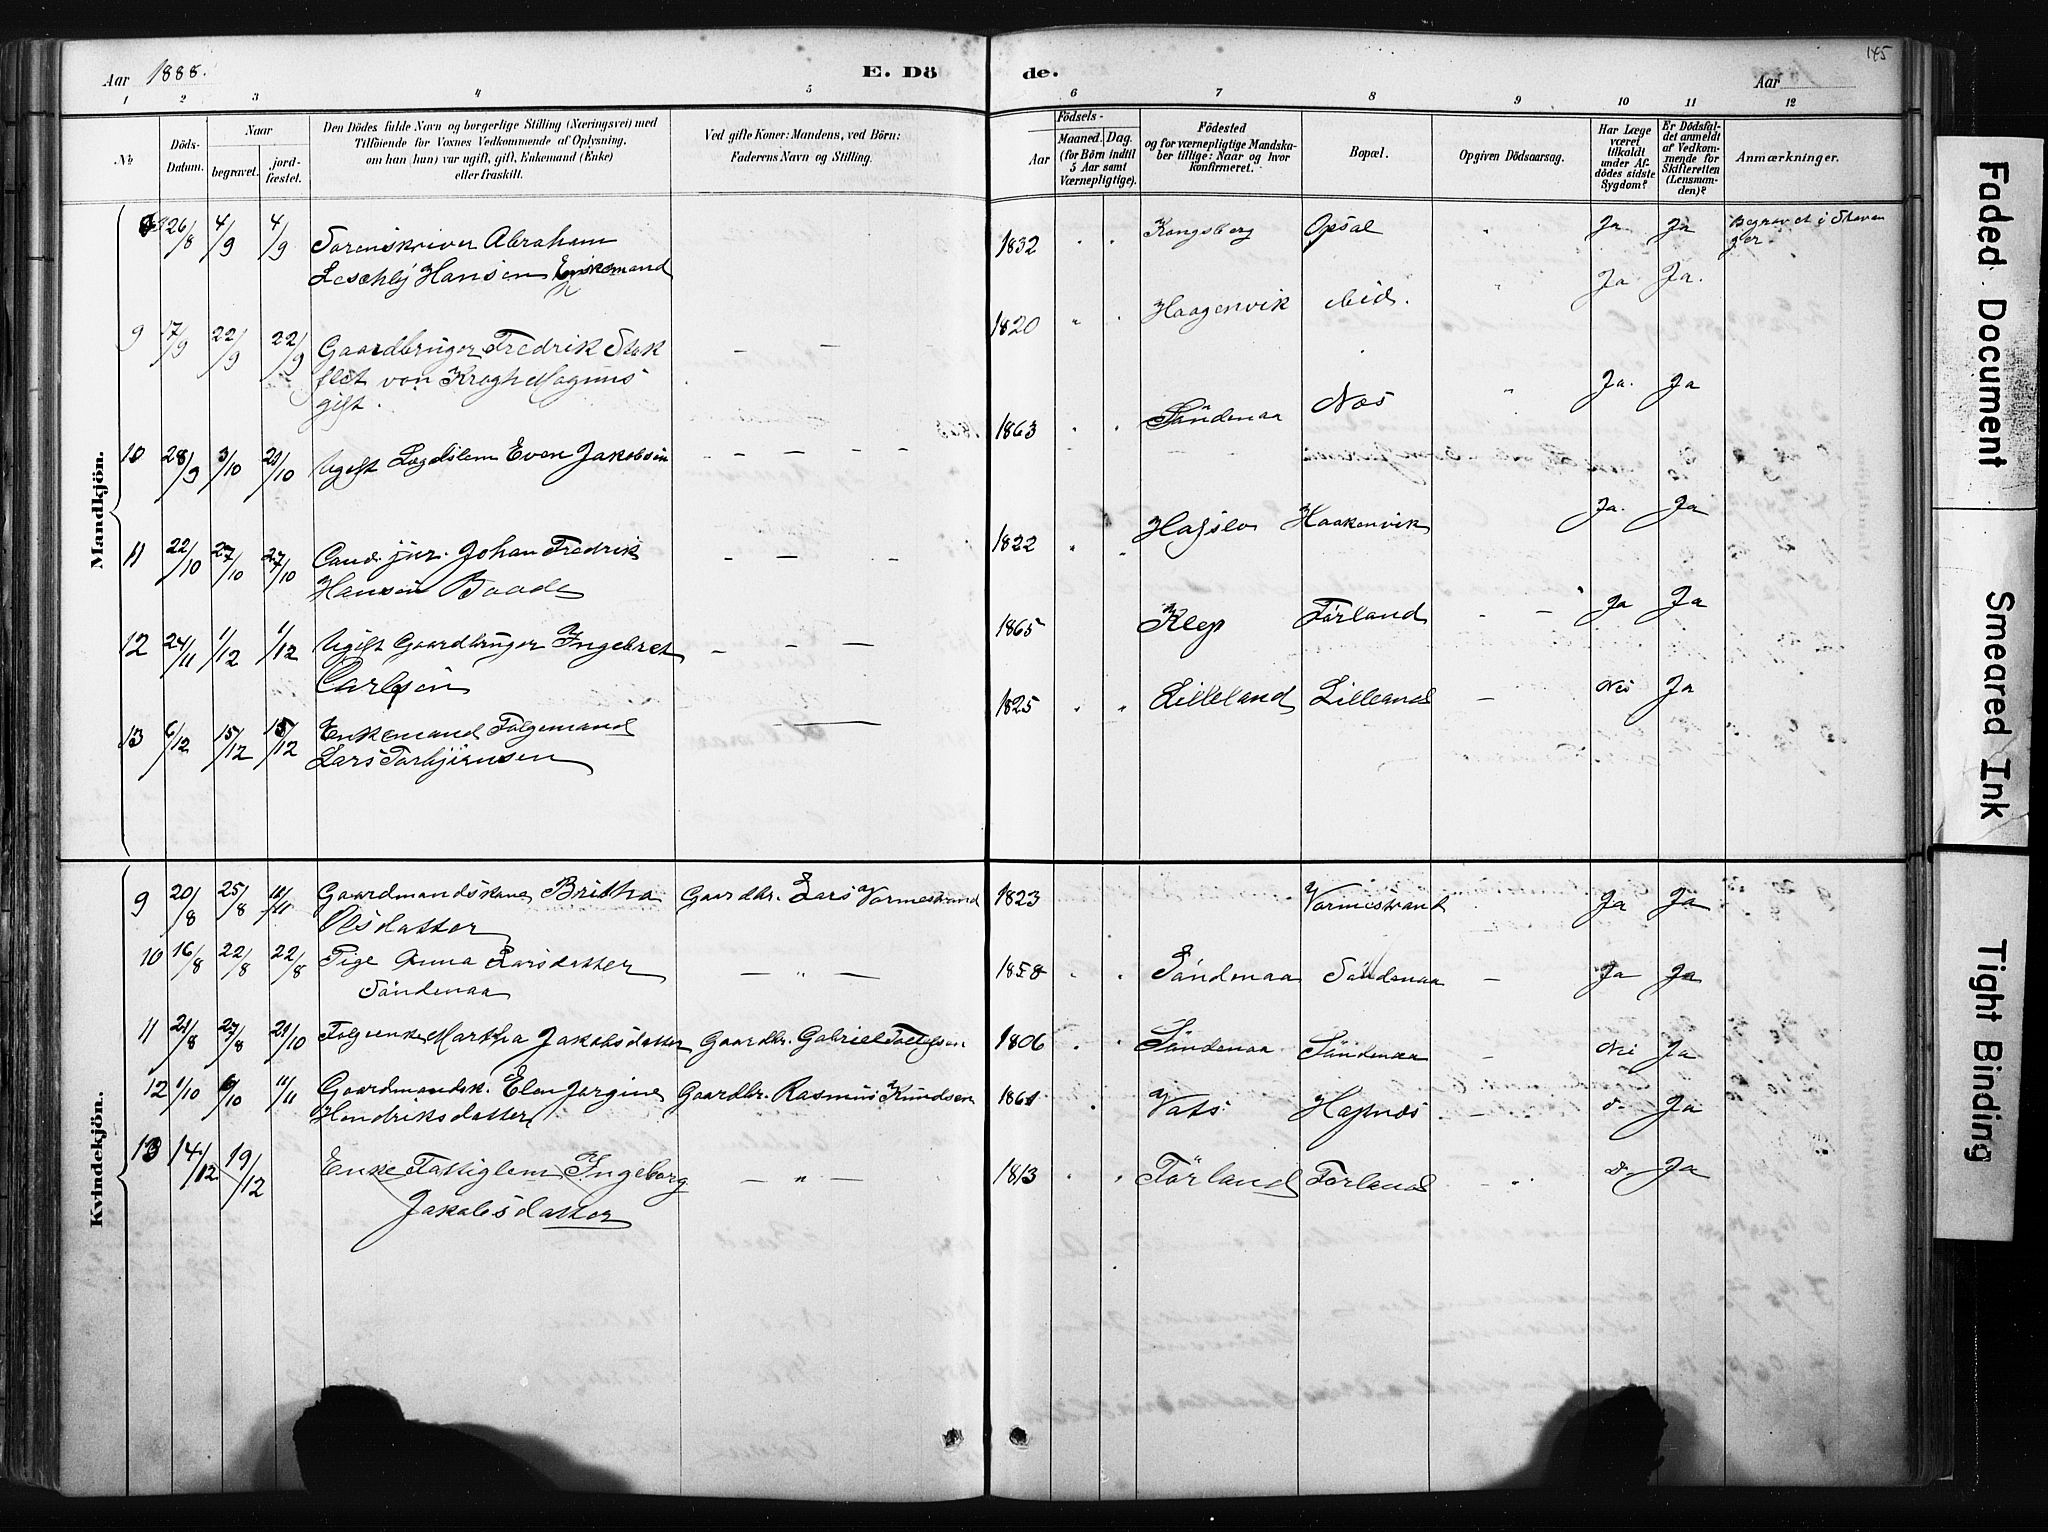 Aar 1888.
E. Dö
de.
Aar
145
1 2 3 4 5 6 7 8 9 10 11 12
№
Döds-
Datum.
Naar
begravet.
jord-
fæstet.
Den Dödes fulde Navn og borgerlige Stilling (Næringsvei) med
Tilföiende for Voxnes Vedkommende af Oplysning,
om han (hun) var ugift, gift, Enkemand (Enke)
eller fraskilt.
Ved gifte Koner: Mandens, ved Börn:
Faderens Navn og Stilling.
Födsels-
Aar
Maaned. Dag.
(for Börn indtil
5 Aar samt
Værnepligtige).
Födested
og for værnepligtige Mandska-
ber tillige: Naar og hvor
konfirmeret.
Bopæl.
Opgiven Dödsaarsag.
Har Læge
været
tilkaldt
under Af-
dödes sidste
Sygdom?
Er Dödsfal-
det anmeldt
af Vedkom-
mende for
Skifteretten
(Lensman-
den)?
Anmærkninger.
Mandkjön.
26/8 4/9 4/9 Sorenskriver Abraham 1832 Kongsberg Opsal Ja Ja Begravet i Stavan
Leschly Hansen Enkemand ger.
9 17/9 22/9 22/9 Gaardbruger Fredrik Stok 1820 Haagenvik ibid. Ja Ja.
flet von Krogh Magnus
gift.
10 28/9 3/10 21/10 Ugift Lægdslem Even Jakobsen 1863 Söndenaa Næs Ja. Ja
11 22/10 27/10 27/10 Cand. jur. Johan Fredrik 1822 Hafslo Haakenvik Ja. Ja
Hansen Baade
12 24/11 1/12 1/12 Ugift Gaardbruger Ingebret 1865 Klep Førland Ja Ja
Carlsen
13 6/12 15/12 15/12 Enkemand Folgemand 1825 Lilleland Lilleland Nei Ja
Lars Torbjörnsen
Kvindekjön.
9 20/8 25/8 11/11 Gaardmandskone Britha Gaardbr. Lars Vormestrand 1823 Vormestrand Ja Ja
Olsdatter
10 16/8 22/8 22/8 Pige Anna Larsdatter 1858 Söndenaa Söndenaa Ja Ja
Söndenaa
11 21/8 27/8 21/10 Folgeenke Martha Jakobsdatter Gaardbr. Gabriel Tollefsen 1806 Söndenaa Söndenaa Nei Ja
12 1/10 6/10 11/11 Gaardmandsk. Elen Jorgine Gaardbr. Rasmus Knudsen 1861 Vats Hapnæs Ja
Hendriksdatter
13 14/12 19/12 Enke Fattiglem Ingeborg 1813 Förland Forland Ja
Jakobsdatter
Faded Document
Smeared Ink
Tight Binding